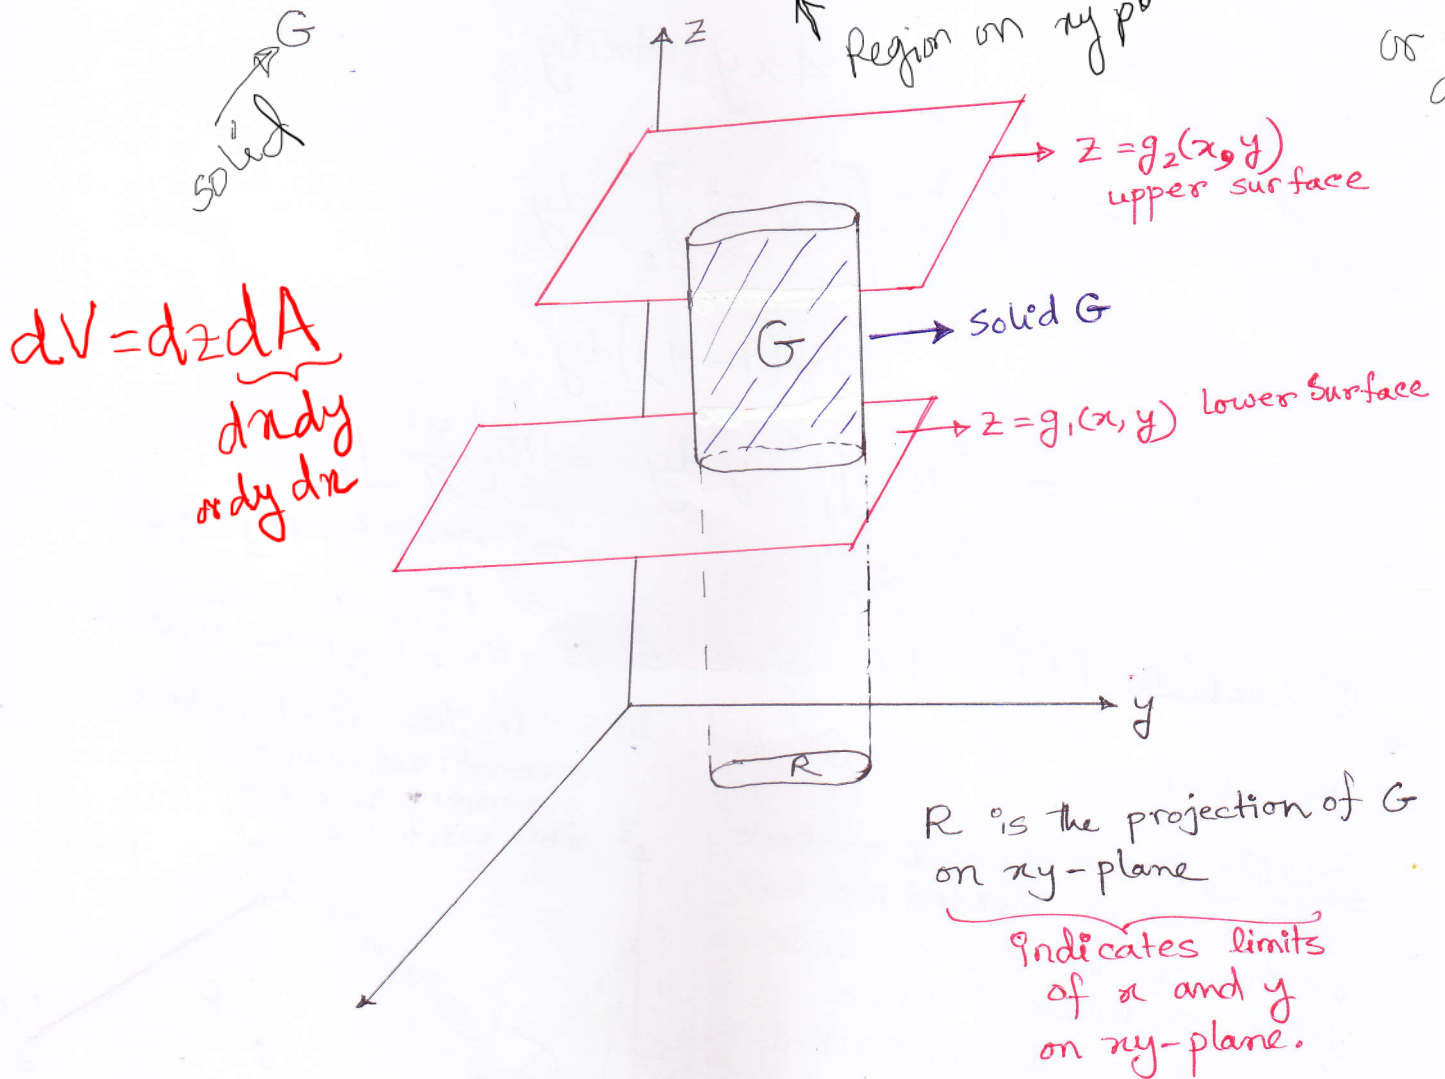 G
solid
z
Region on xy
or
z = g₂(x, y)
upper surface
dV = dz dA
dxdy
or dy dx
G
Solid G
z = g₁(x, y) Lower Surface
y
R
R is the projection of G
on xy-plane
indicates limits
of x and y
on xy-plane.